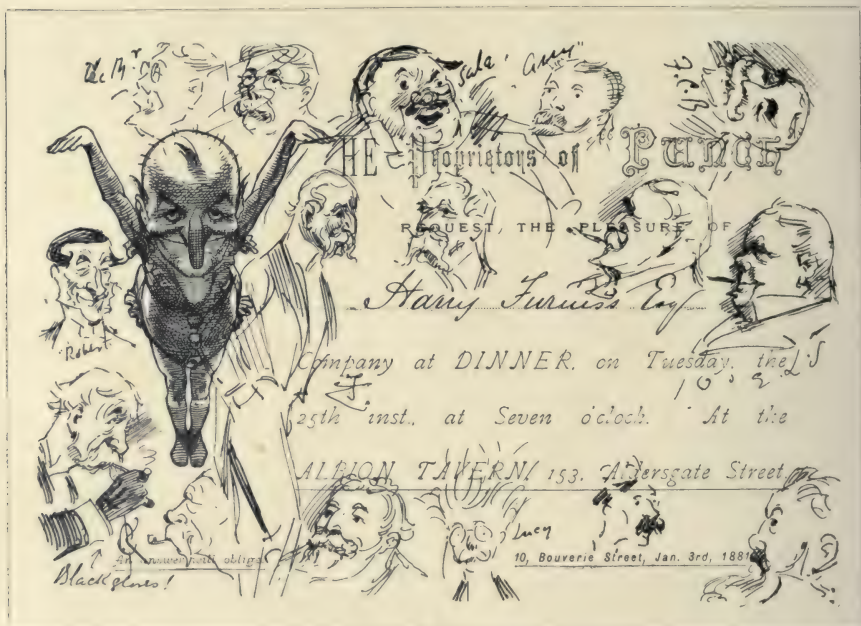 Sala!
F.C.B
THE Proprietors of PUNCH
REQUEST, THE PLEASURE OF
Harry Furniss Esq
Company at DINNER, on Tuesday, the
25th inst., at Seven o'clock. At the
ALBION TAVERN, 153, Aldersgate Street
Robert
Lucy
An answer will oblige
10, Bouverie Street, Jan. 3rd, 1881
Black gloves!